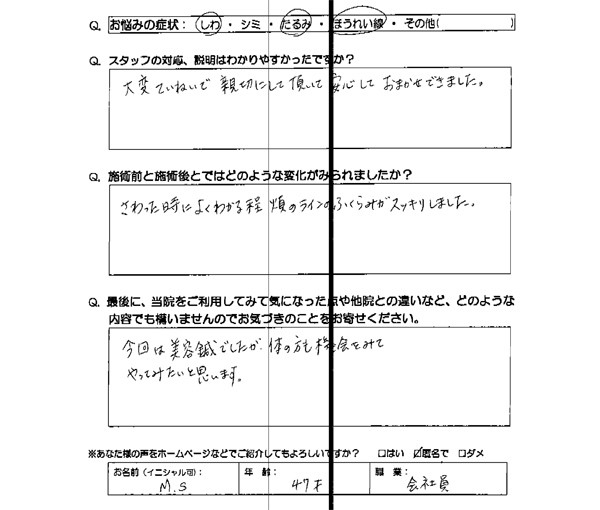 Q. お悩みの症状：しわ・シミ・たるみ・ほうれい線・その他(　　　)
Q. スタッフの対応、説明はわかりやすかったですか？
大変ていねいで親切にして頂いて安心しておまかせできました。
Q. 施術前と施術後とではどのような変化がみられましたか？
さわった時によくわかる程 頬のラインのふくらみがスッキリしました。
Q. 最後に、当院をご利用してみて気になった点や他院との違いなど、どのような
内容でも構いませんのでお気づきのことをお寄せください。
今回は美容鍼でしたが、体の方も機会をみて
やってみたいと思います。
※あなた様の声をホームページなどでご紹介してもよろしいですか？ □はい ☑匿名で □ダメ
お名前(イニシャル可)： 年齢： 職業：
M.S 47才 会社員